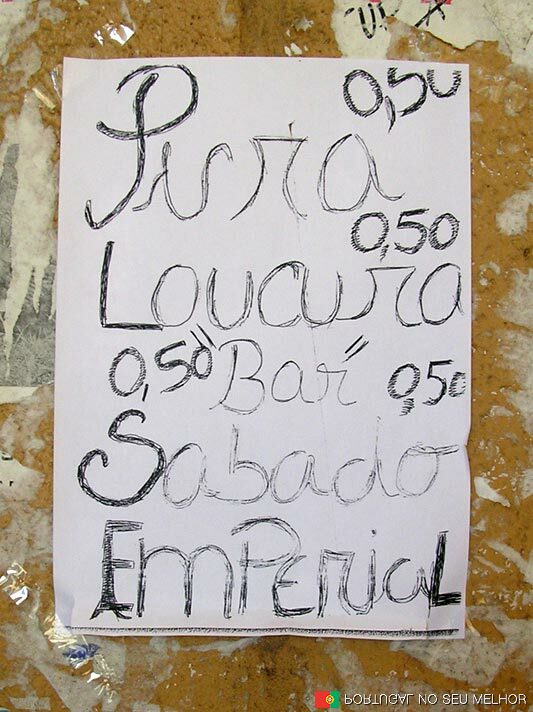 Pura 0,50
0,50
Loucura
0,50 "Bar" 0,50
Sabado
EmPerial
PORTUGAL NO SEU MELHOR